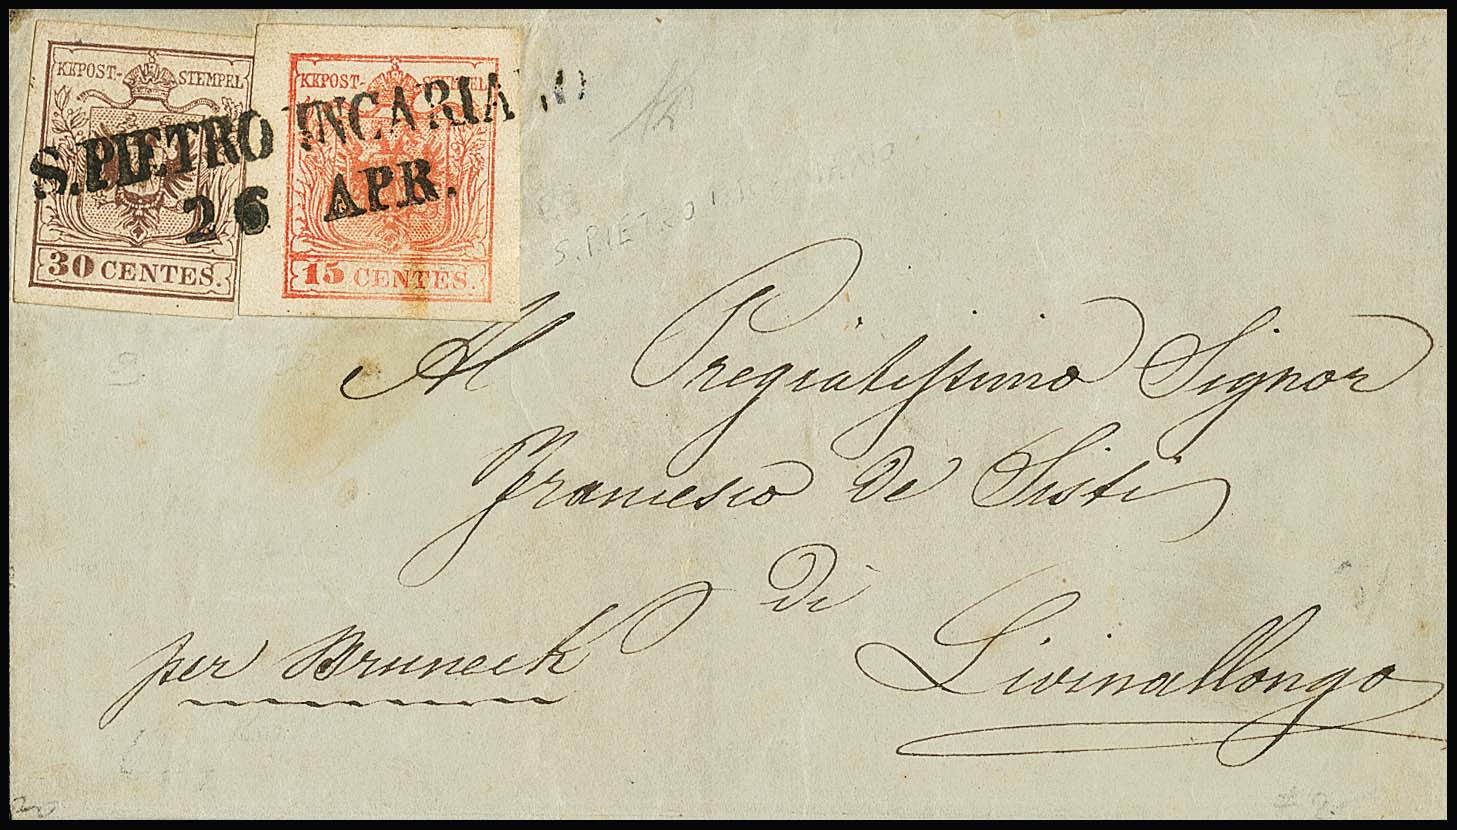 KKPOST-STEMPEL
30 CENTES.
KKPOST-STEMPEL
15 CENTES.
S.PIETRO INCARIANO
26 APR.
S. PIETRO INCARIANO
Al Pregiatissimo Signor
Francesco de Sisti
di
Livinallongo
per Bruneck